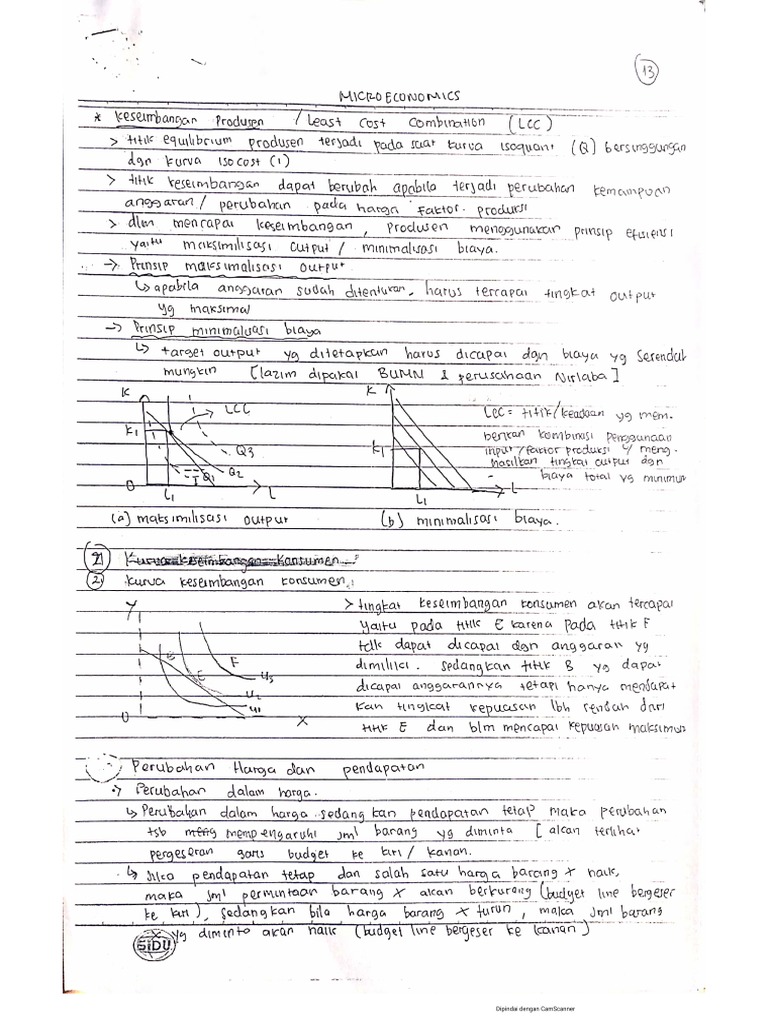 13
MICROECONOMICS
* Keseimbangan Produsen / Least Cost Combination (LCC)
> titik equilibrium produsen terjadi pada saat kurva isoquant (Q) bersinggungan
dgn kurva isocost (1)
> titik keseimbangan dapat berubah apabila terjadi perubahan kemampuan
anggaran / perubahan pada harga faktor produksi
> dlm mencapai keseimbangan, produsen menggunakan prinsip efisiensi
yaitu maksimilisasi output / minimalisasi biaya.
-> Prinsip maksimalisasi output
↳ apabila anggaran sudah ditentukan, harus tercapai tingkat output
yg maksimal
-> Prinsip minimalisasi biaya
↳ target output yg ditetapkan harus dicapai dgn biaya yg serendah
mungkin [lazim dipakai BUMN & perusahaan Nirlaba]
K
LCC
K1
Q3
Q2
Q1
I
0
L1
L
(a) maksimilisasi output
K
K1
L1
L
(b) minimalisasi biaya.
LCC = titik/keadaan yg mem.
berikan kombinasi penggunaan
input/faktor produksi u/ meng.
hasilkan tingkat output dgn
biaya total yg minimum
2) Kurva keseimbangan konsumen :
2) kurva keseimbangan konsumen :
Y
B
E
F
U3
U2
U1
0
X
> tingkat keseimbangan konsumen akan tercapai
yaitu pada titik E karena pada titik F
tdk dapat dicapai dgn anggaran yg
dimiliki. sedangkan titik B yg dapat
dicapai anggarannya tetapi hanya mendapat
kan tingkat kepuasan lbh rendah dari
titik E dan blm mencapai kepuasan maksimum
Perubahan Harga dan pendapatan
> Perubahan dalam harga.
↳ Perubahan dalam harga sedang kan pendapatan tetap maka perubahan
tsb meng mempengaruhi jml barang yg diminta [akan terlihat
pergeseran garis budget ke kiri / kanan.
↳ Jika pendapatan tetap dan salah satu harga barang x naik,
maka jml permintaan barang x akan berkurang (budget line bergeser
ke kiri), sedangkan bila harga barang x turun, maka jml barang
x yg diminta akan naik (budget line bergeser ke kanan)
SIDU
Dipindai dengan CamScanner